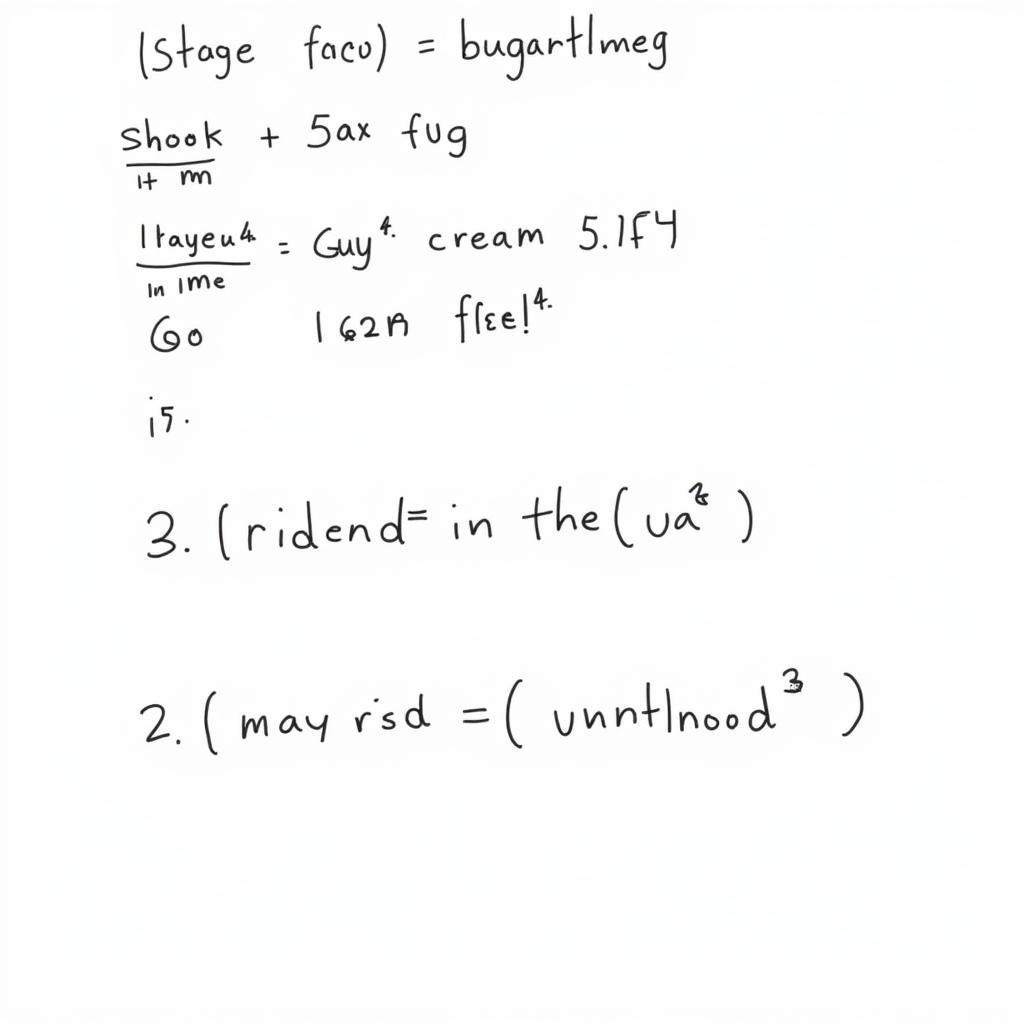 (Stage faco) = bugartlmeg
Shook + 5ax fug
It m
Itayeu4 = Guy4. cream 5.1F4
In 1me
Go 162A flee!4.
i5.
3. (ridend= in the (ua2 )
2. ( may r'sd = ( unntlnood3 )